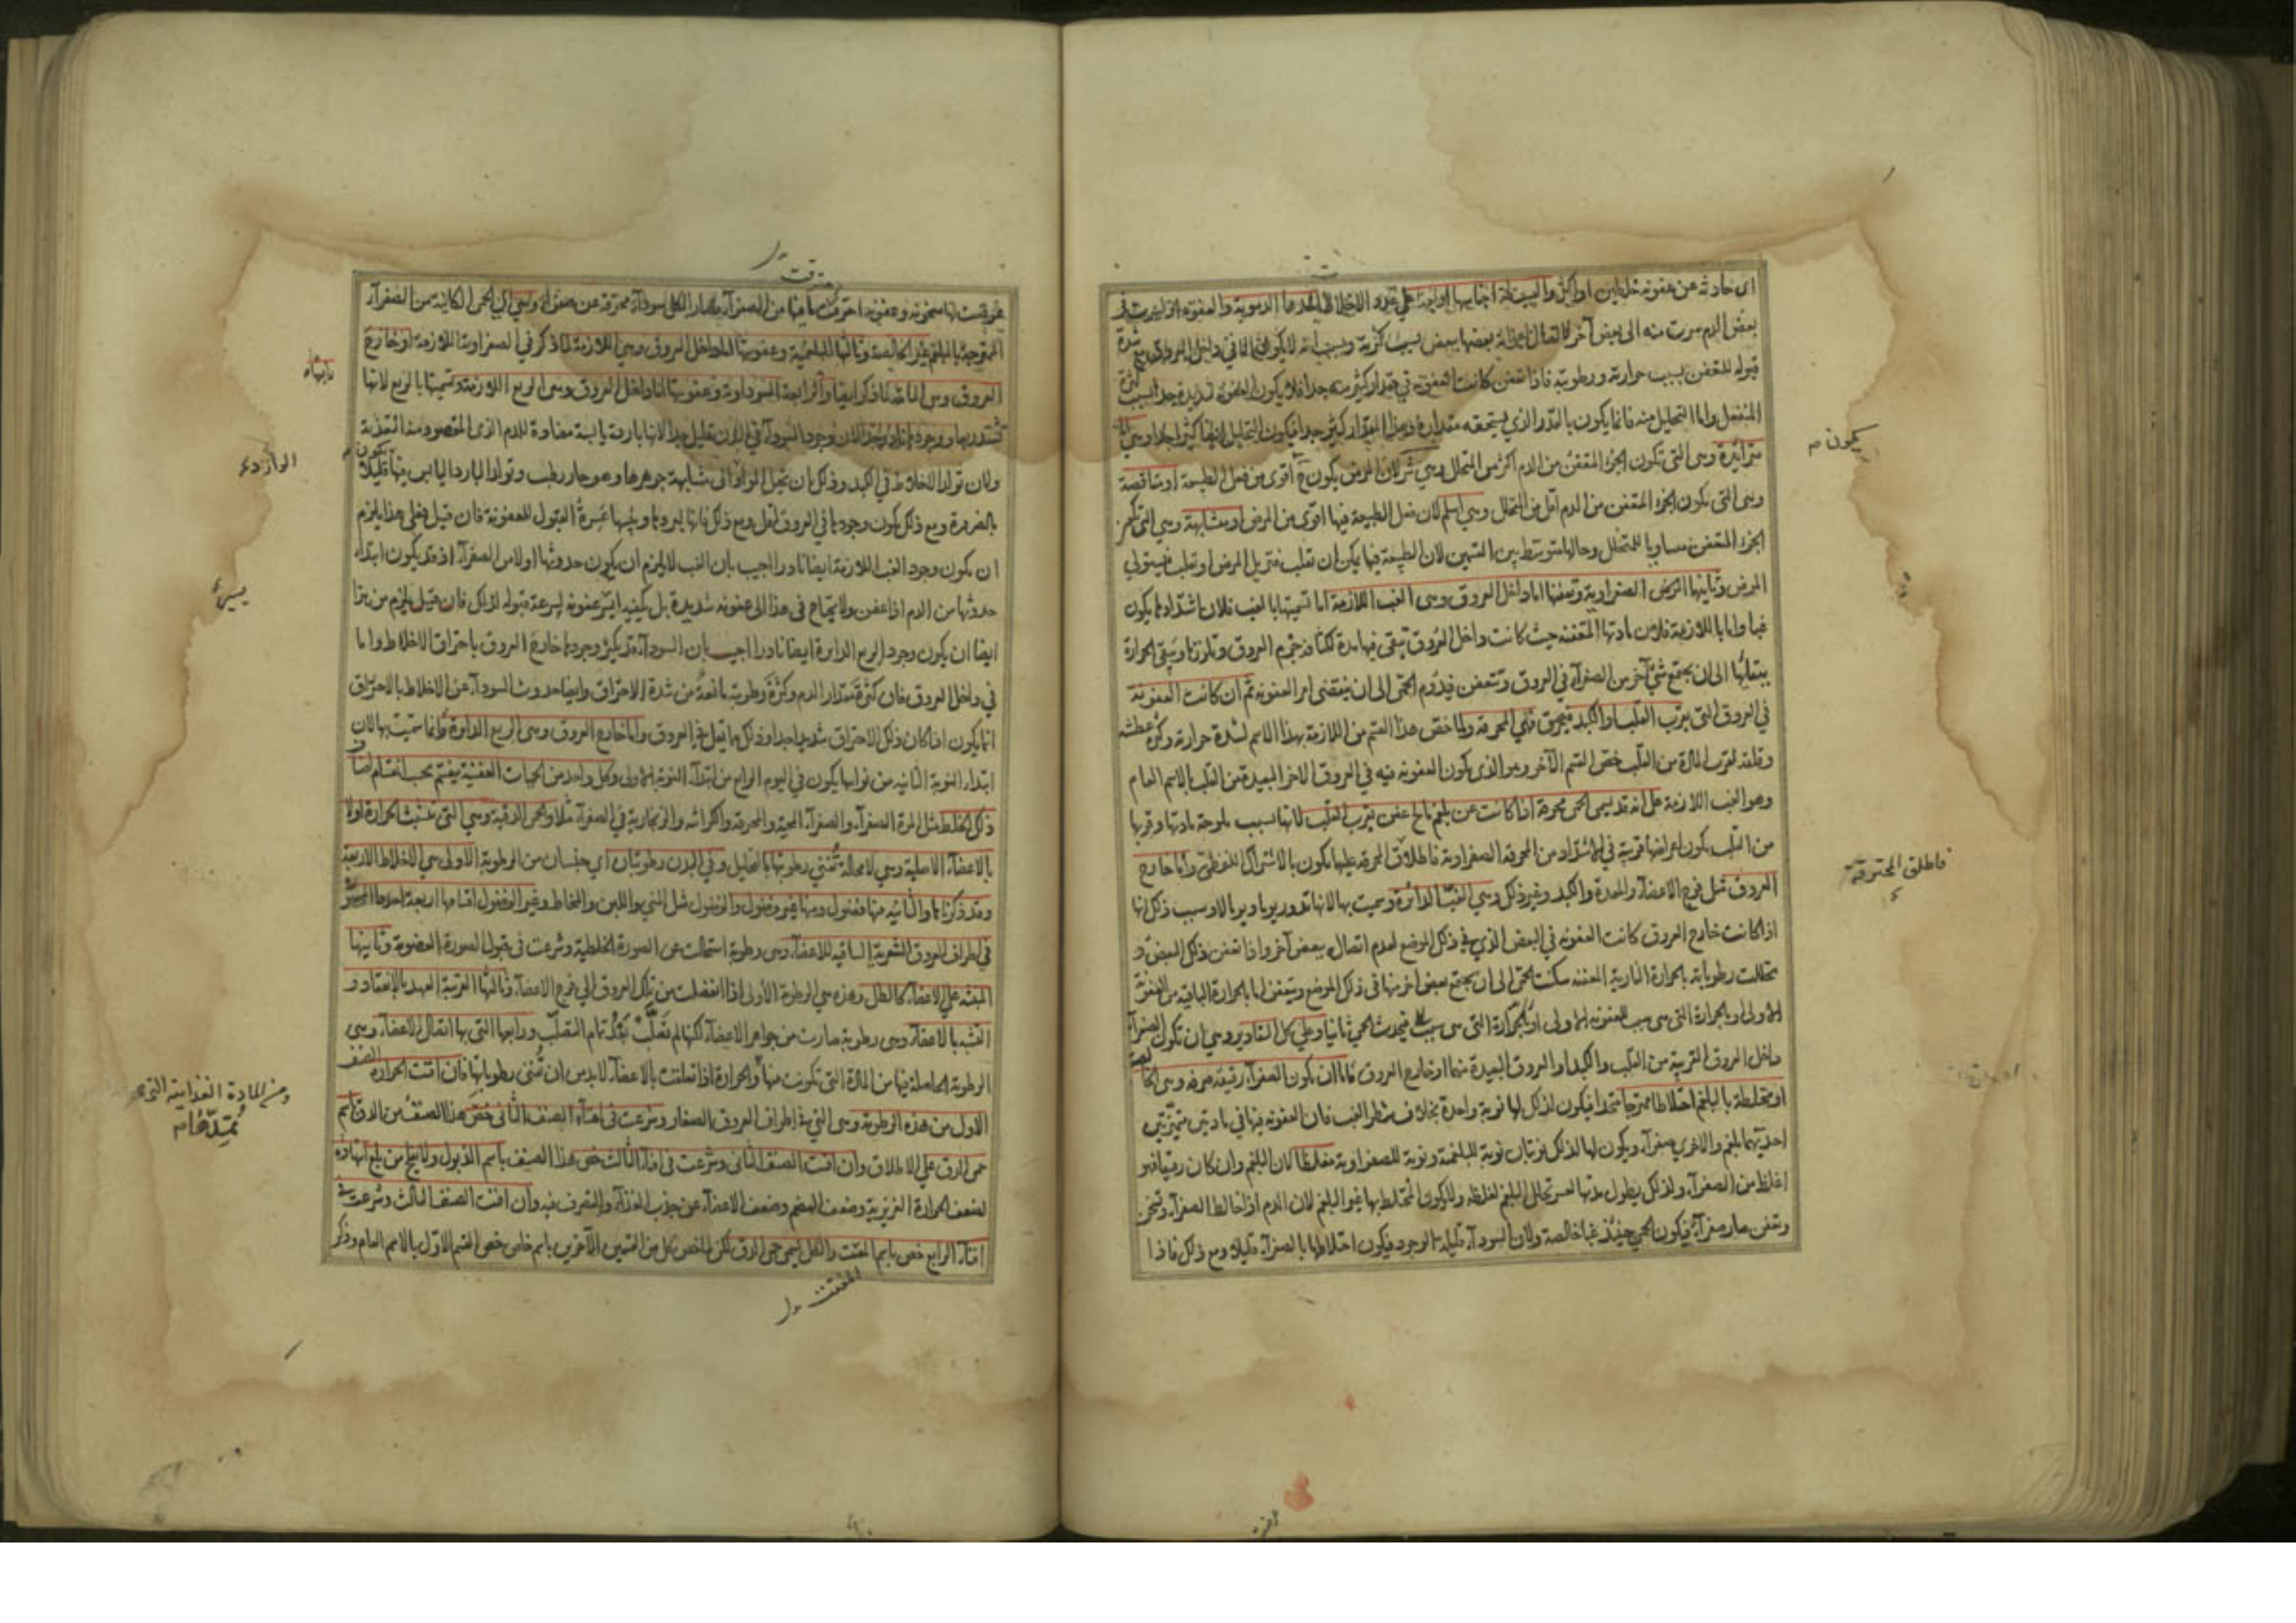 اى حادثة عن عفونة خلطين او اكثر والبسيطة اجناسها اربعة على عدد الاخلاط احدها الدموية والعفونة اذا عرضت فى
بعض الدم سرت منه الى بعض آخر لاتصال بعضها ببعض بسبب كثرته وبسبب انه لا يكون الا فى داخل العروق مع شدة
قبوله للتعفن بسبب حرارته ورطوبته فاذا تعفن كانت العفونة فى مقدار كثير منه جدا فلا يكون العفونة شديدة جدا لسبب كثرة
المنفعل واما التحليل منه فانما يكون بالقدر الذى يستحقه مقداره وهذا المقدار كثير جدا فيكون التحليل ايضا كثيرا جدا وهى اما
متزائدة وهى التى تكون الجزء المتعفن من الدم اكثر من المتحلل وهى شر لان المرض يكون ح اقوى من فعل الطبيعة او متناقصة
وهى التى يكون الجزء المتعفن من الدم اقل من المتحلل وهى اسلم لان فعل الطبيعة فيها اقوى من المرض او متشابهة وهى التى يكون
الجزء المتعفن مساويا للمتحلل وحالها متوسط بين القسمين لان الطبيعة فيها يمكن ان تغلب فتزيل المرض او تغلب فيستولى
المرض وثانيها المرض الصفراوية وتعفنها اما داخل العروق وهى الغب اللازمة اما تسميتها بالغب فلان اشتدادها يكون
غبا واما باللازمة فلان مادتها المتعفنة حيث كانت داخل العروق تبقى فيها مدة لكثافة جرم العروق وتلززها وتبقى الحرارة
ببقائها الى ان يجتمع شئ آخر من الصفرآء فى العروق وتتعفن فيدوم الحمى الى ان ينقضى امر العفونة ثم ان كانت العفونة
فى العروق التى بقرب القلب او الكبد فهى المحرقة وانما خص هذا القسم من اللازمة بهذا الاسم لشدة حرارته وكثرة عطشه
وقلقه لقرب المادة من القلب خص القسم الآخر وهو الذى يكون العفونة فيه فى العروق الاخر البعيدة من القلب بالاسم العام
وهو الغب اللازمة على انه قد يسمى الحمى محرقة اذا كانت عن بلغم مالح عفن بقرب القلب لانها بسبب ملوحة مادتها وقربها
من القلب يكون اعراضها قريبة فى الاشتداد من المحرقة الصفراوية فاطلاق المحرقة عليها يكون بالاشتراك اللفظى واما خارج
العروق مثل فرج الاعضآء والمعدة والكبد وغير ذلك وهى الغب الدائرة وسميت بها لانها تدور يوما ويوما لا وسبب ذلك انها
اذا كانت خارج العروق كانت العفونة فى البعض الذى فى ذلك الموضع لعدم اتصاله ببعض آخر واذا تعفن ذلك البعض و
تحللت رطوباته بالحرارة النارية العفنة سكنت الحمى الى ان يجتمع بعض اخر منها فى ذلك الموضع ويتعفن اما بالحرارة الباقية من العفونة
الاولى او بالحرارة التى هى سبب للعفونة الاولى او بالحرارة التى هى سبب فيحدث الحمى ثانيا وعلى كل التقادير وهى ان تكون الصفرآء
داخل العروق القريبة من القلب والكبد او العروق البعيدة منهما او خارج العروق فاما ان يكون الصفرآء رقيقة صرفة وهى الخالصة
او مختلطة بالبلغم اختلاطا ممتزجا متحدا فيكون لذلك لها نوبة واحدة بخلاف شطر الغب فان العفونة فيها فى مادتين متميزتين
احديهما بلغم والاخرى صفرآء ويكون لها لذلك نوبتان نوبة للبلغمية ونوبة للصفراوية مغلظا كان البلغم وان كان رقيقا فهو
اغلظ من الصفرآء ولذلك يطول مدتها لعسر تحلل البلغم لغلظه ولا يكون المختلط بها غير البلغم لان الدم اذا خالط الصفرآء وتسخن
وتعفن صار صفرآء فيكون الحمى حينئذ غبا خالصة ولان السودآء قليلة الوجود فيكون اختلاطها بالصفرآء قليلا ومع ذلك فاذا
يكون
فاطلق المحترقة
عرضت لها سخونة وعفونة احترقت
الممتزجة بالبلغم غير الخالصة وثالثها البلغمية وعفونتها اما داخل العروق وهى اللازمة لما ذكر فى الصفراوية اللازمة او خارج
العروق وهى النائبة لما ذكر ايضا والرابعة السوداوية وعفونتها اما داخل العروق وهى الربع اللازمة وتسميتها بالربع لانها
تشتد ربعا ووجودها نادر جدا لان وجود السودآء فى البدن قليل جدا لانها باردة يابسة مضادة للدم الذى المقصود منه التغذية
ولان تولد الاخلاط فى الكبد وذلك بان تحيل المواد الى مشابهة جوهرها وهو حار رطب وتولد البارد اليابس منها قليلا
بالضرورة ومع ذلك يكون وجودها فى العروق اقل ومع ذلك فانها لبردها ويبسها عسرة القبول للعفونة فان قيل فعلى هذا يلزم
ان يكون وجود الغب اللازمة ايضا نادرا اجيب بان الغب لا يلزم ان يكون حدوثها اولا من الصفرآء اذ قد يكون ابتداء
حدوثها من الدم اذا عفن ولا يحتاج فى هذا الى عفونة شديدة بل يكفيه ايسر عفونة لسرعة قبوله لذلك فان قيل يلزم من هذا
ايضا ان يكون وجود الربع الدائرة ايضا نادرا اجيب بان السودآء قد يكثر وجودها خارج العروق باحتراق الاخلاط واما
فى داخل العروق فان كثرة مقدار الدم وكثرة رطوبته مانعة عن شدة الاحتراق وايضا حدوث السودآء عن الاخلاط بالاحتراق
انما يكون اذا كان ذلك الاحتراق شديدا جدا وذلك مما يقل فى العروق واما خارج العروق وهى الربع الدائرة وانما سميت بها لان
ابتداء النوبة الثانية من نوابها يكون فى اليوم الرابع من ابتدآء النوبة الاولى وكل واحد من الحميات العفنية ينقسم بحسب اقسام اصناف
ذلك الخلط مثل المرة الصفرآء والصفرآء المحية والمحرقة والكراثية والزنجارية فى الصفرآء مثلا والحمى الدقية وهى التى تتشبث الحرارة اولا
بالاعضآء الاصلية وهى لا محالة تفنى رطوبتها بالتحليل وفى البدن رطوبتان اى جنسان من الرطوبة الاولى هى الاخلاط الاربعة
وقد ذكرناها والثانية منها فضول ومنها غير فضول والفضول مثل المنى واللبن والمخاط وغير الفضول اقسامها اربعة احدها المحصورة
فى اطراف العروق الشعرية الساقية للاعضآء وهى رطوبة استحالت عن الصورة الخلطية وشرعت فى قبول الصورة العضوية وثانيها
المنبثة على الاعضآء كالطل وهذه هى الرطوبة الاولى اذا انفصلت من تلك العروق الى فرج الاعضآء وثالثها القريبة العهد بالانعقاد و
التشبه بالاعضآء وهى رطوبة صارت من جواهر الاعضآء لكنها لم تصلب بعد تمام التصلب ورابعها التى بها اتصال الاعضآء وهى
الرطوبة الحاصلة فيها من المادة التى تكونت منها والحرارة اذا تعلقت بالاعضآء لا بد من ان تفنى رطوباتها فان افنت الحرارة الصنف
الاول من هذه الرطوبة وهى التى فى اطراف العروق الصغار وشرعت فى افنآء الصنف الثانى خص هذا الصنف من الدق باسم
حمى الدق على الاطلاق وان افنت الصنف الثانى وشرعت فى افنآء الثالث خص هذا الصنف باسم الذبول ولا يفلح من بلغ انتهاؤه
لضعف الحرارة الغريزية وضعف الهضم وضعف الاعضآء عن جذب الغذآء والتصرف فيه وان افنت الصنف الثالث وشرعت فى
افنآء الرابع خص باسم المفتت والكل يسمى حمى الدق لكن لما خص كل من القسمين الآخرين باسم خاص خص القسم الاول بالاسم العام وذكر
المفتت
ومن المادة الغذائية التى
تمدها